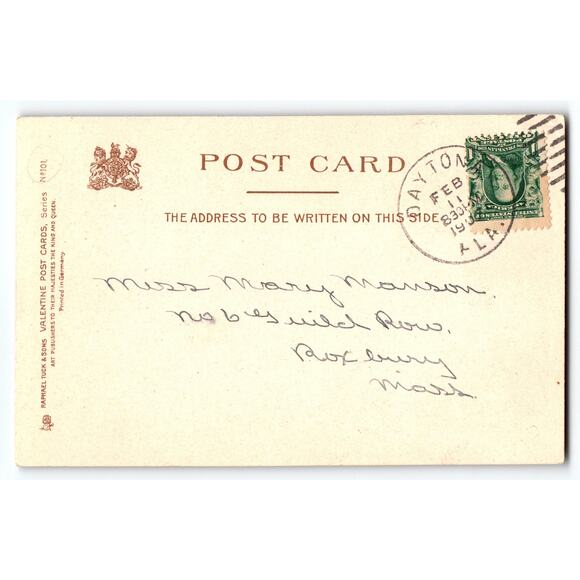 POST CARD
THE ADDRESS TO BE WRITTEN ON THIS SIDE
DAYTON
FEB
11
830
190
ALA.
Miss Mary Manson.
No 6 Guild Row.
Roxbury
Mass.
RAPHAEL TUCK & SONS VALENTINE POST CARDS, Series Nº 101.
ART PUBLISHERS TO THEIR MAJESTIES THE KING AND QUEEN.
Printed in Germany